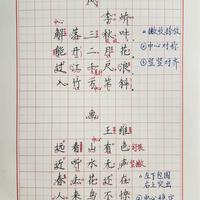 风
李峤
中心
解落三秋叶
能开二月花
过江千尺浪
入竹万竿斜
②中心对称
③竖竖对齐
画
王维
中心
远看山有色
近听水无声
春去花还在
人来鸟不惊
①左下包围
右上突出